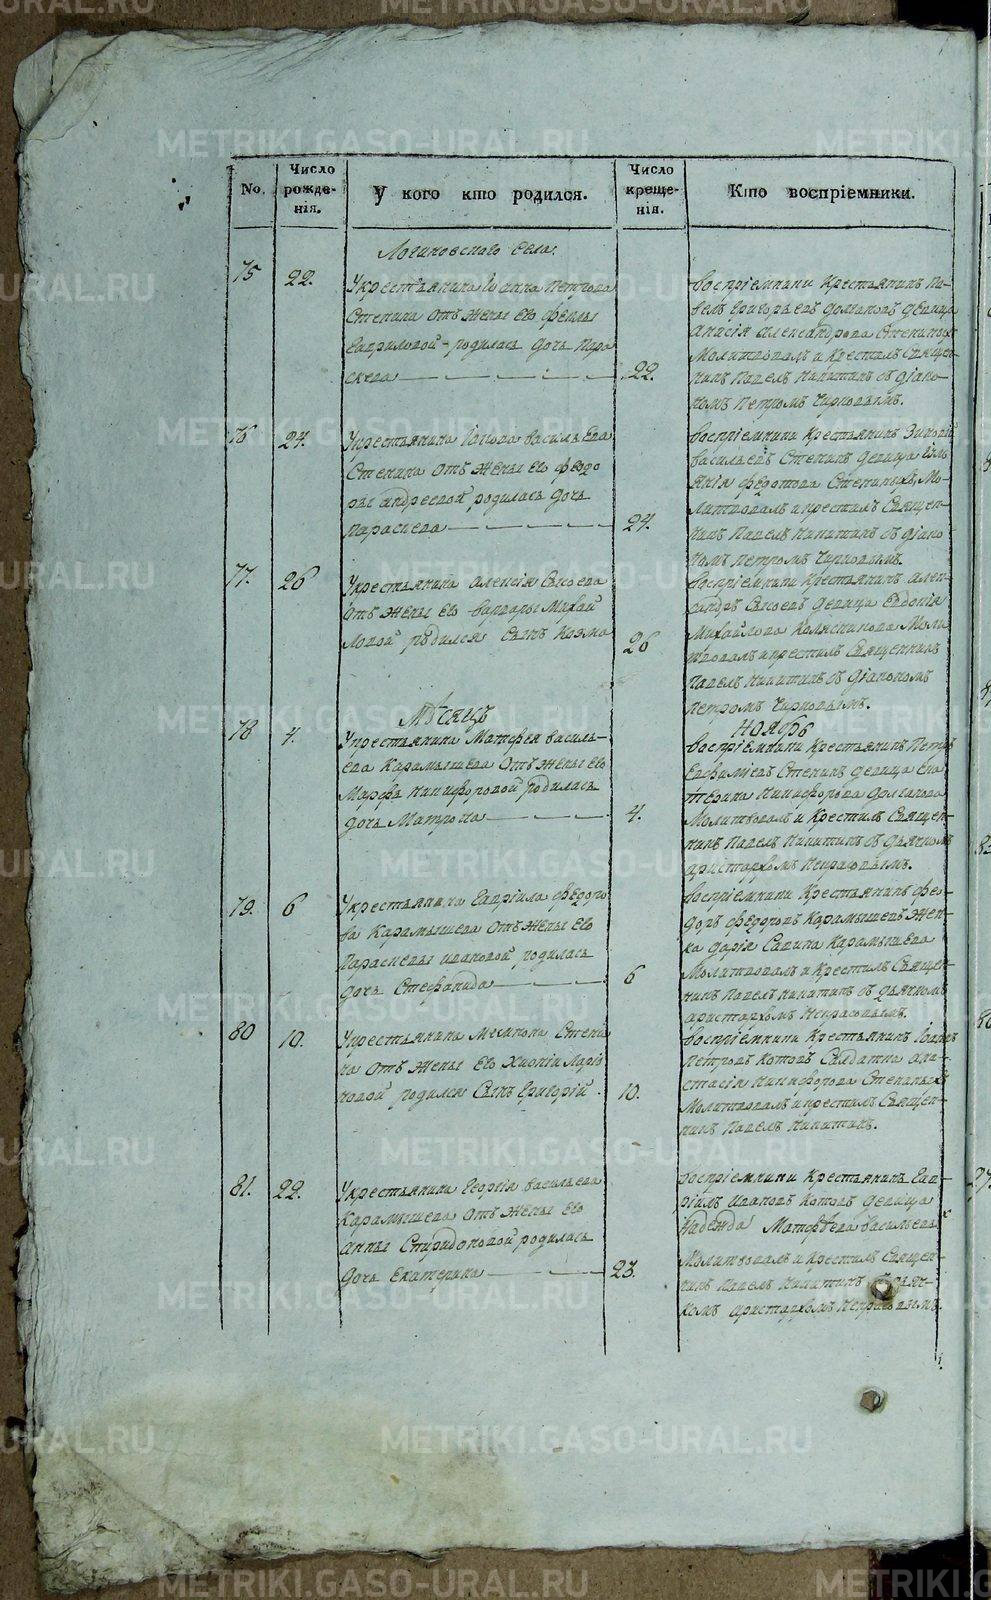 No.
Число рожде- нія.
У кого кто родился.
Число креще- нія.
Кто воспріемники.
Логиновского села:
75 22. У крестьянина Іоанна Петрова
Стенина отъ жены его Феклы
Гавриловой родилась дочь Пара
скева 22.
Воспріемники крестьянинъ Па-
велъ Григорьевъ Долгановъ девица
Анисія Александрова Стенина
Молитвовалъ и крестилъ Священ-
никъ Павелъ Никитинъ съ діако-
номъ Петромъ Чирковымъ.
76 24. У крестьянина Іакова Васильева
Стенина отъ жены его Федо
ры Андреевой родилась дочь
Параскева 24.
Воспріемники крестьянинъ Зиновій
Васильевъ Стенинъ девица
Федотова Стениныхъ, Мо-
литвовалъ и крестилъ Священ-
никъ Павелъ Никитинъ съ діако
номъ Петромъ Чирковымъ.
77. 26 У крестьянина Алексія Сысоева
отъ жены его Варвары Михай
ловой родился сынъ Козма 26
Воспріемники крестьянинъ Алек-
сандръ Сысоевъ девица Евдокія
Михайлова Колясникова Моли
твовалъ и крестилъ Священникъ
Павелъ Никитинъ съ діакономъ
Петромъ Чирковымъ.
Мѣсяцъ Ноябрь
78 4. У крестьянина Матфея Василь-
ева Карамышева отъ жены его
Марфы Никифоровой родилась
дочь Матрона 4.
Воспріемники крестьянинъ Петръ
Евфиміевъ Стенинъ девица Ека
терина Никифорова Долганова
Молитвовалъ и крестилъ Священ-
никъ Павелъ Никитинъ съ дьячкомъ
Аристархомъ Некрасовымъ.
79. 6 У крестьянина Гавріила Федоро
ва Карамышева отъ жены его
Параскевы Ивановой родилась
дочь Стефанида 6
Воспріемники крестьянинъ Фе-
доръ Федоровъ Карамышевъ жен-
ка Дарія Савина Карамышева
Молитвовалъ и крестилъ Священ-
никъ Павелъ Никитинъ съ дьячкомъ
Аристархомъ Некрасовымъ.
80 10. У крестьянина Стени
на отъ жены его Хионіи Ларіо
новой родился сынъ Григорій 10.
Воспріемники крестьянинъ Іоаннъ
Петровъ Котовъ Салдатка Ана
стасія Никифорова Стениныхъ
Молитвовалъ и крестилъ Священ-
никъ Павелъ Никитинъ.
81. 22. У крестьянина Георгія Васильева
Карамышева отъ жены его
Анны Спиридоновой родилась
дочь Екатерина 23.
Воспріемники крестьянинъ Гав-
ріилъ Ивановъ Котовъ девица
Надежда Матфѣева Васильевыхъ
Молитвовалъ и крестилъ Священ-
никъ Павелъ Никитинъ
комъ Аристархомъ Некрасовымъ.
METRIKI.GASO-URAL.RU